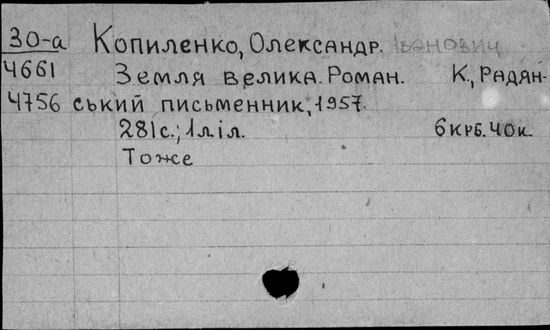 30-а Копиленко, Олександр. Іванович
4661 Земля велика. Роман. К., Радян-
4756 ський письменник, 1957.
281с.; 1л іл. 6крб. 40к.
Тоже